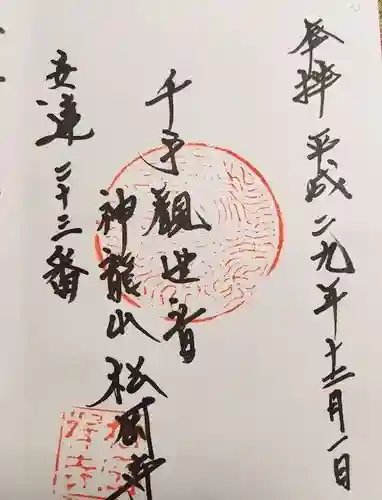 奉拝 平成二九年十二月一日
千手観世音
神龍山 松原寺
安達二十三番